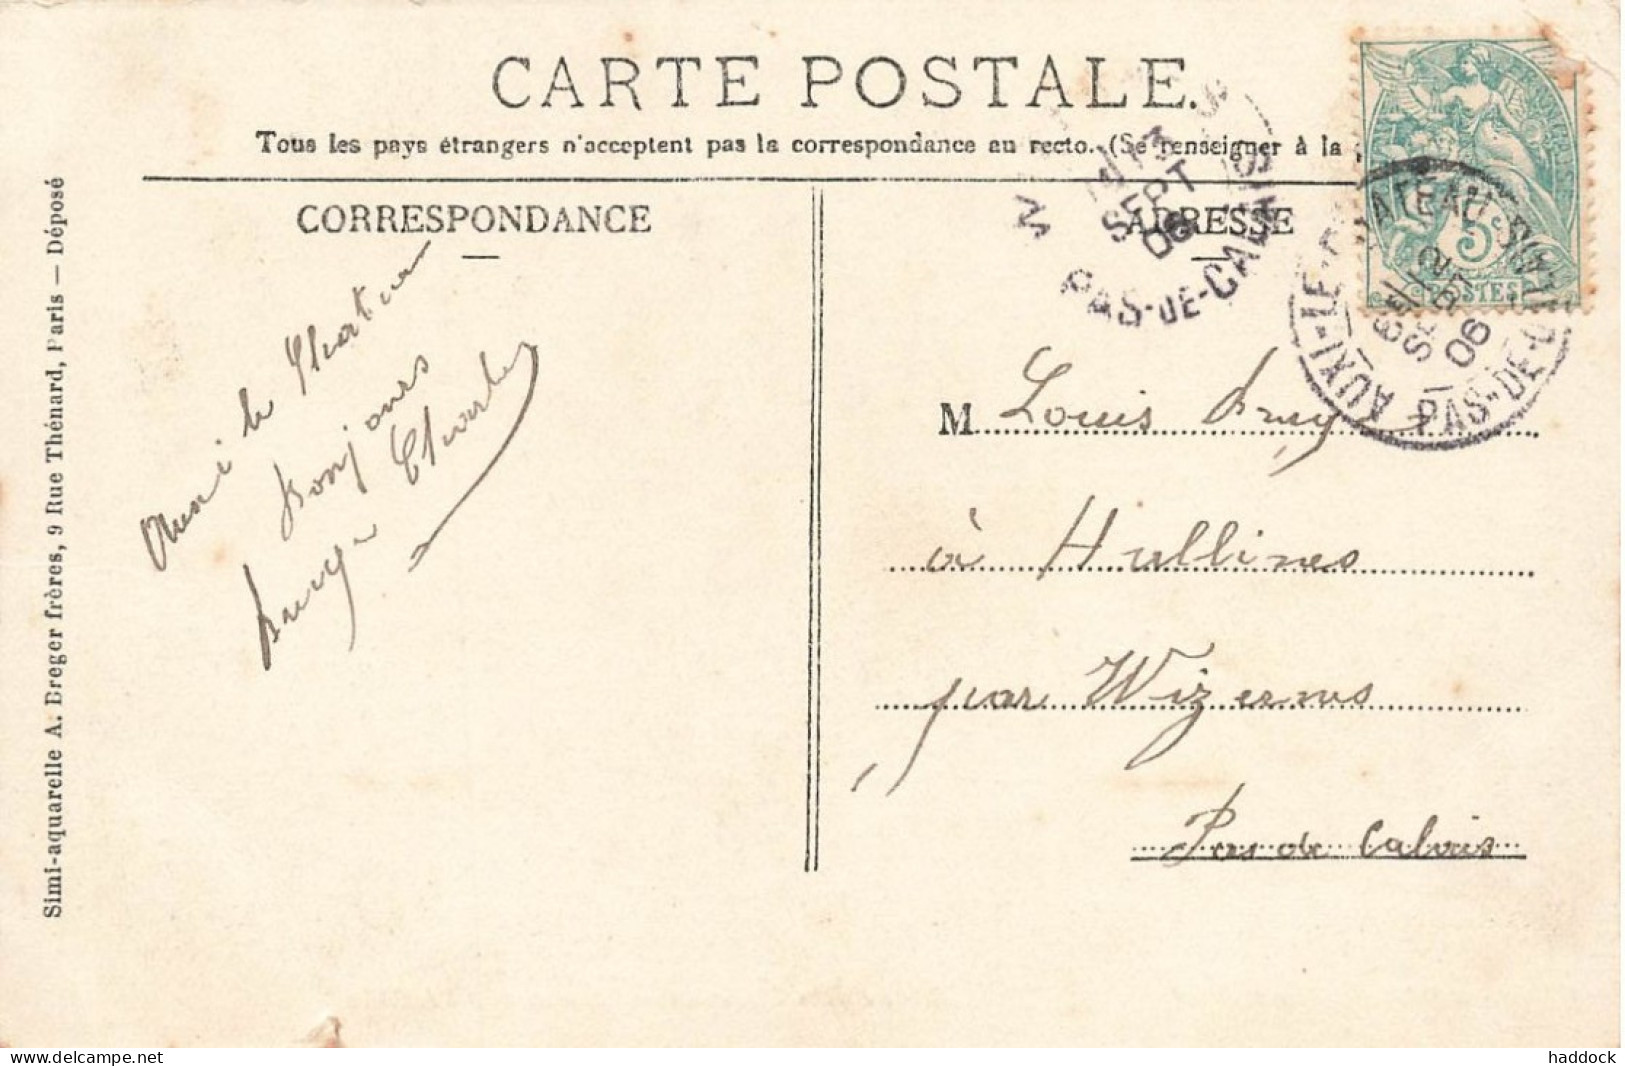 CARTE POSTALE.
Tous les pays étrangers n'acceptent pas la correspondance au recto. (Se renseigner à la
CORRESPONDANCE
ADRESSE
Simi-aquarelle A. Breger frères, 9 Rue Thénard, Paris — Déposé
le
Bonjours
Charles
M Louis
à Hallines
par Wizernes
Pas de Calais
SEPT
06
PAS-DE-CALAIS
AUXI-LE-CHATEAU
06
PAS-DE-CALAIS
5c
POSTES
haddock